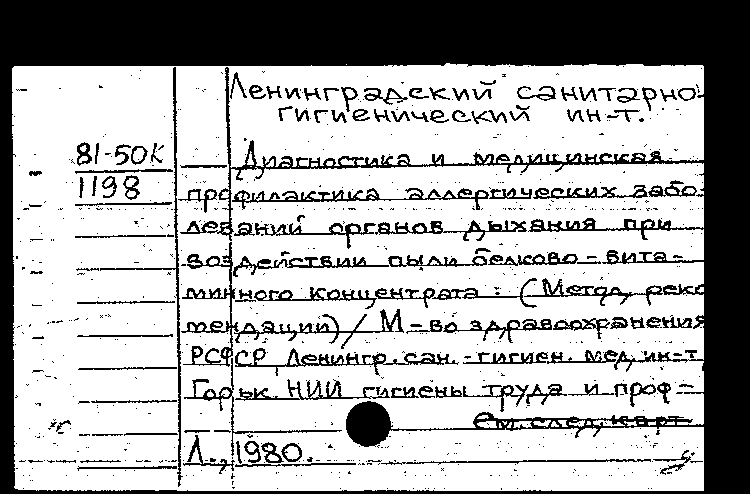 Ленинградский санитарно-
гигиенический ин-т.
81-50К
1198
Диагностика и медицинская
профилактика аллергических забо-
леваний органов дыхания при
воздействии пыли белково-вита-
минного концентрата: (Метод, реко
мендации) / М-во здравоохранения
РСФСР, Ленингр. сан.-гигиен. мед. ин-т,
Горьк. НИИ гигиены труда и проф-
см. след. карт
Л., 1980.